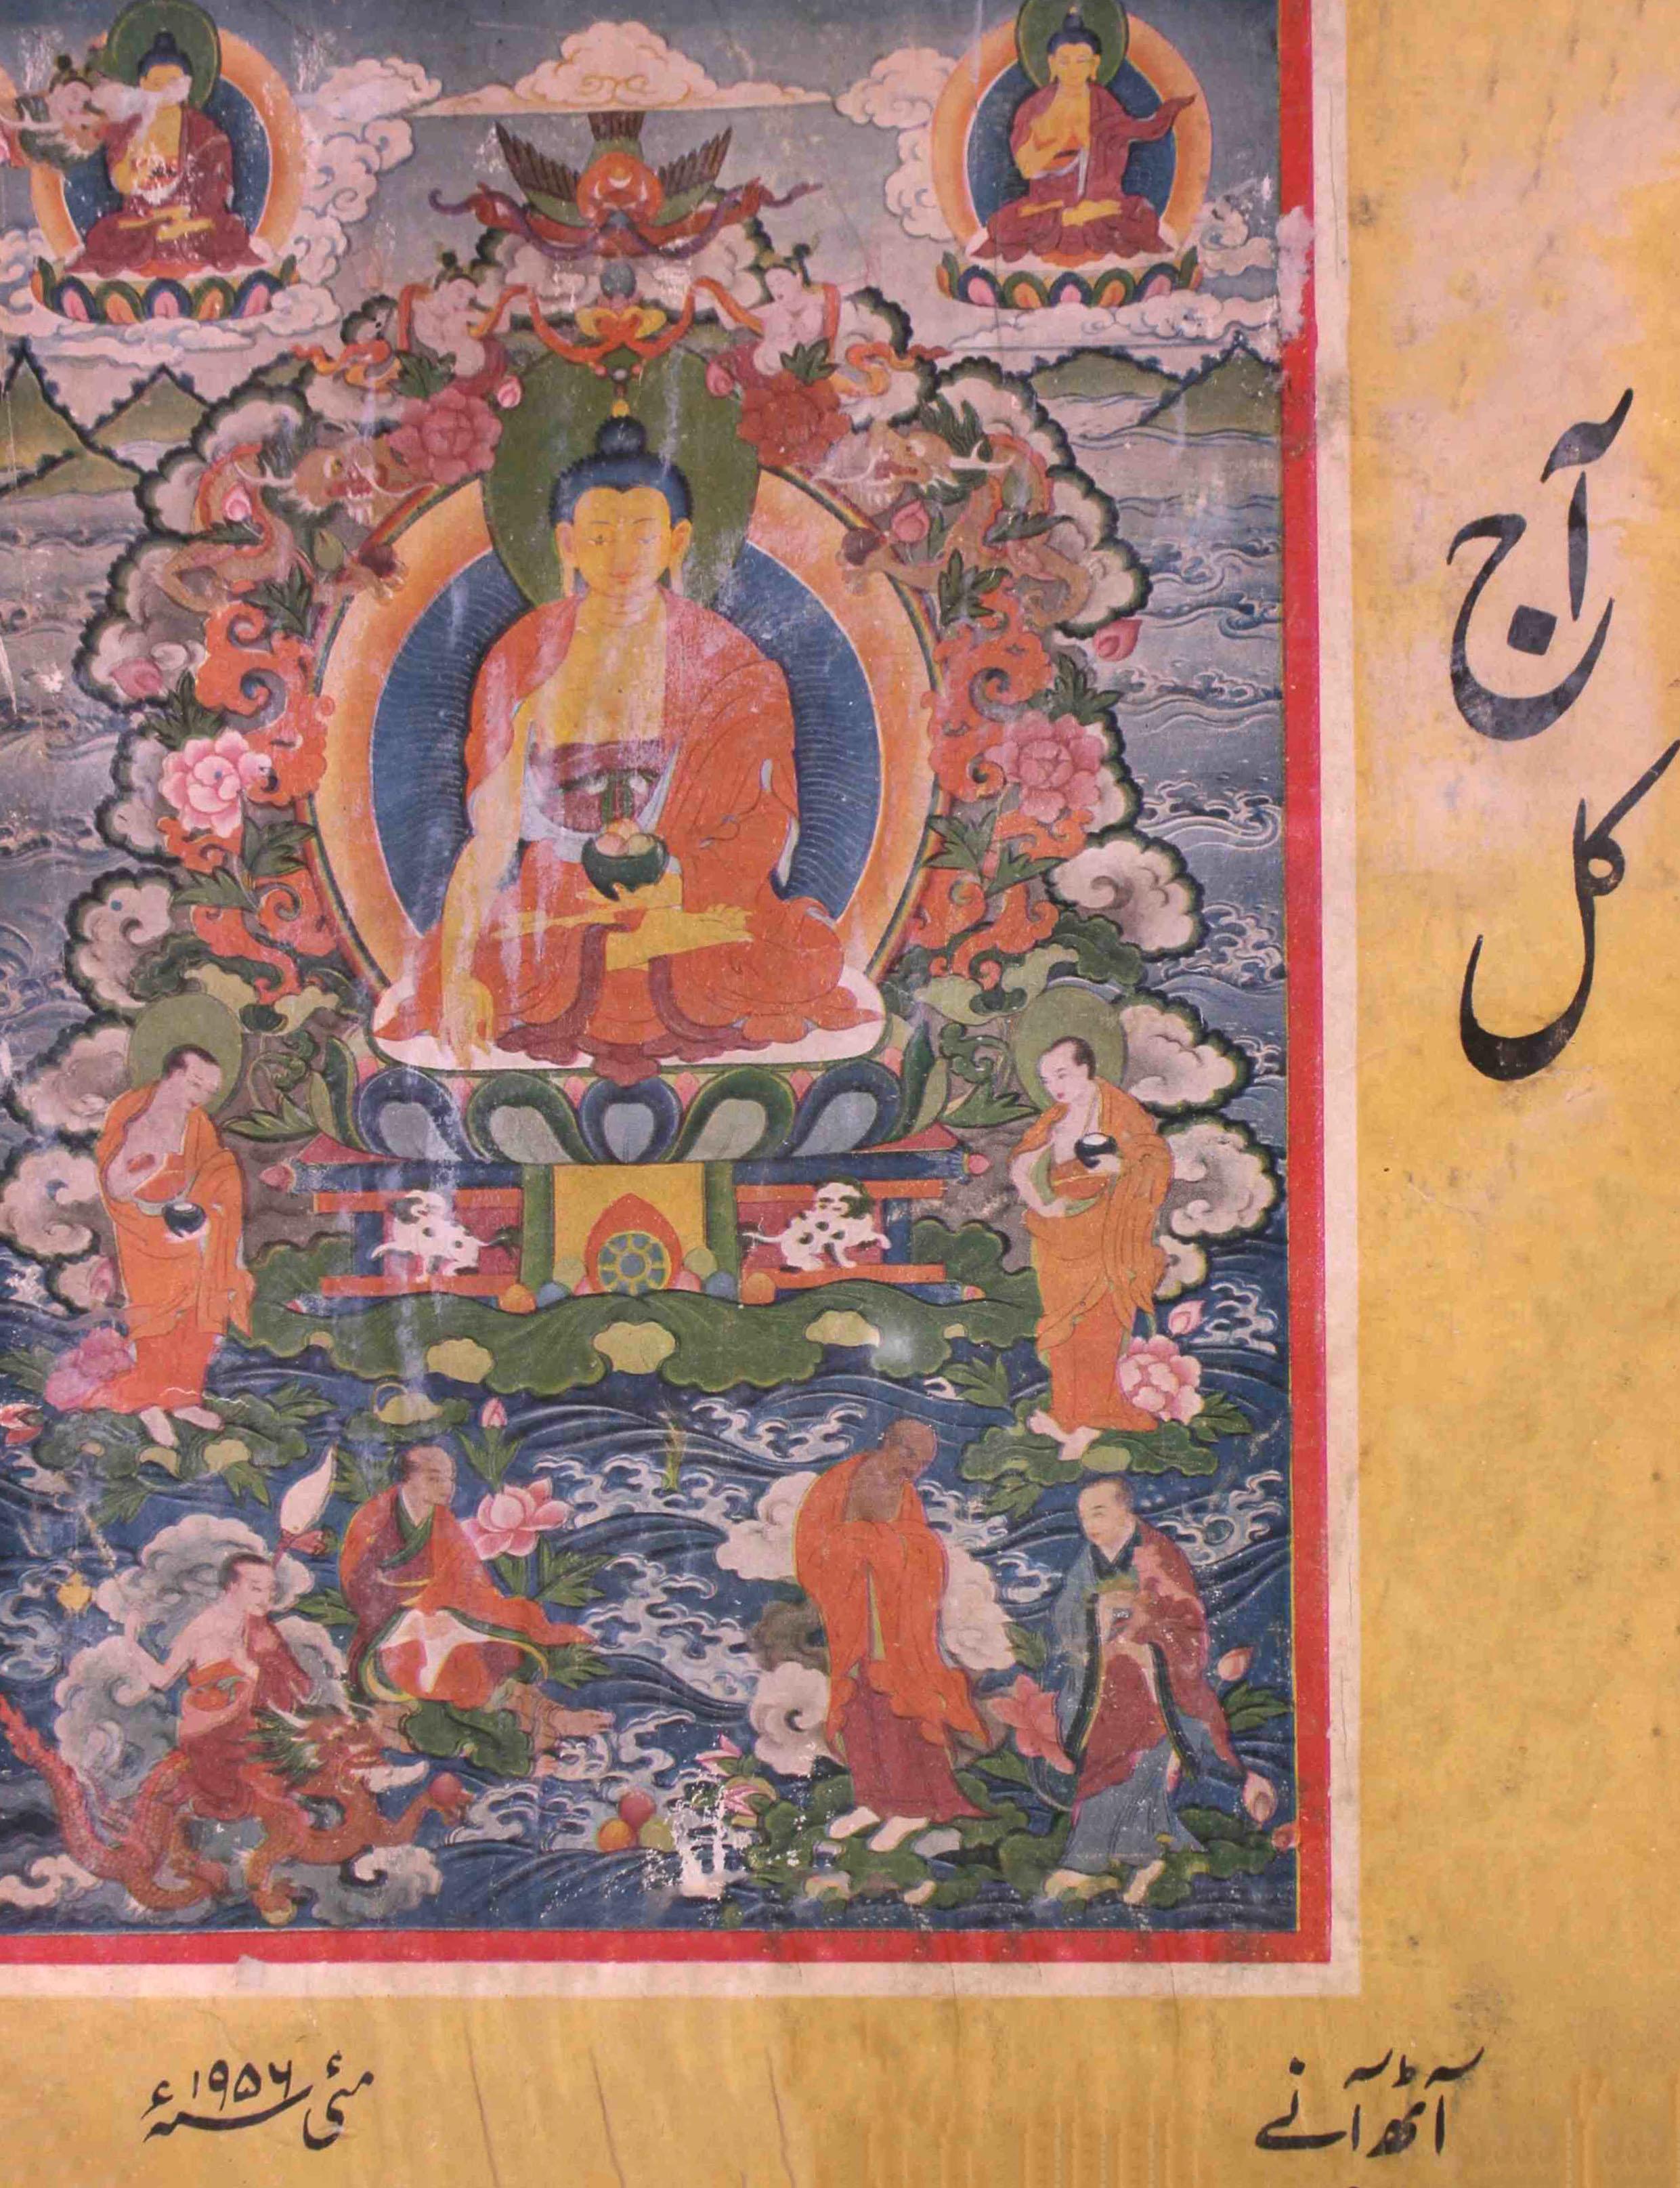 آج
کل
آٹھ آنے
مئی سنہ ۱۹۵۶ء